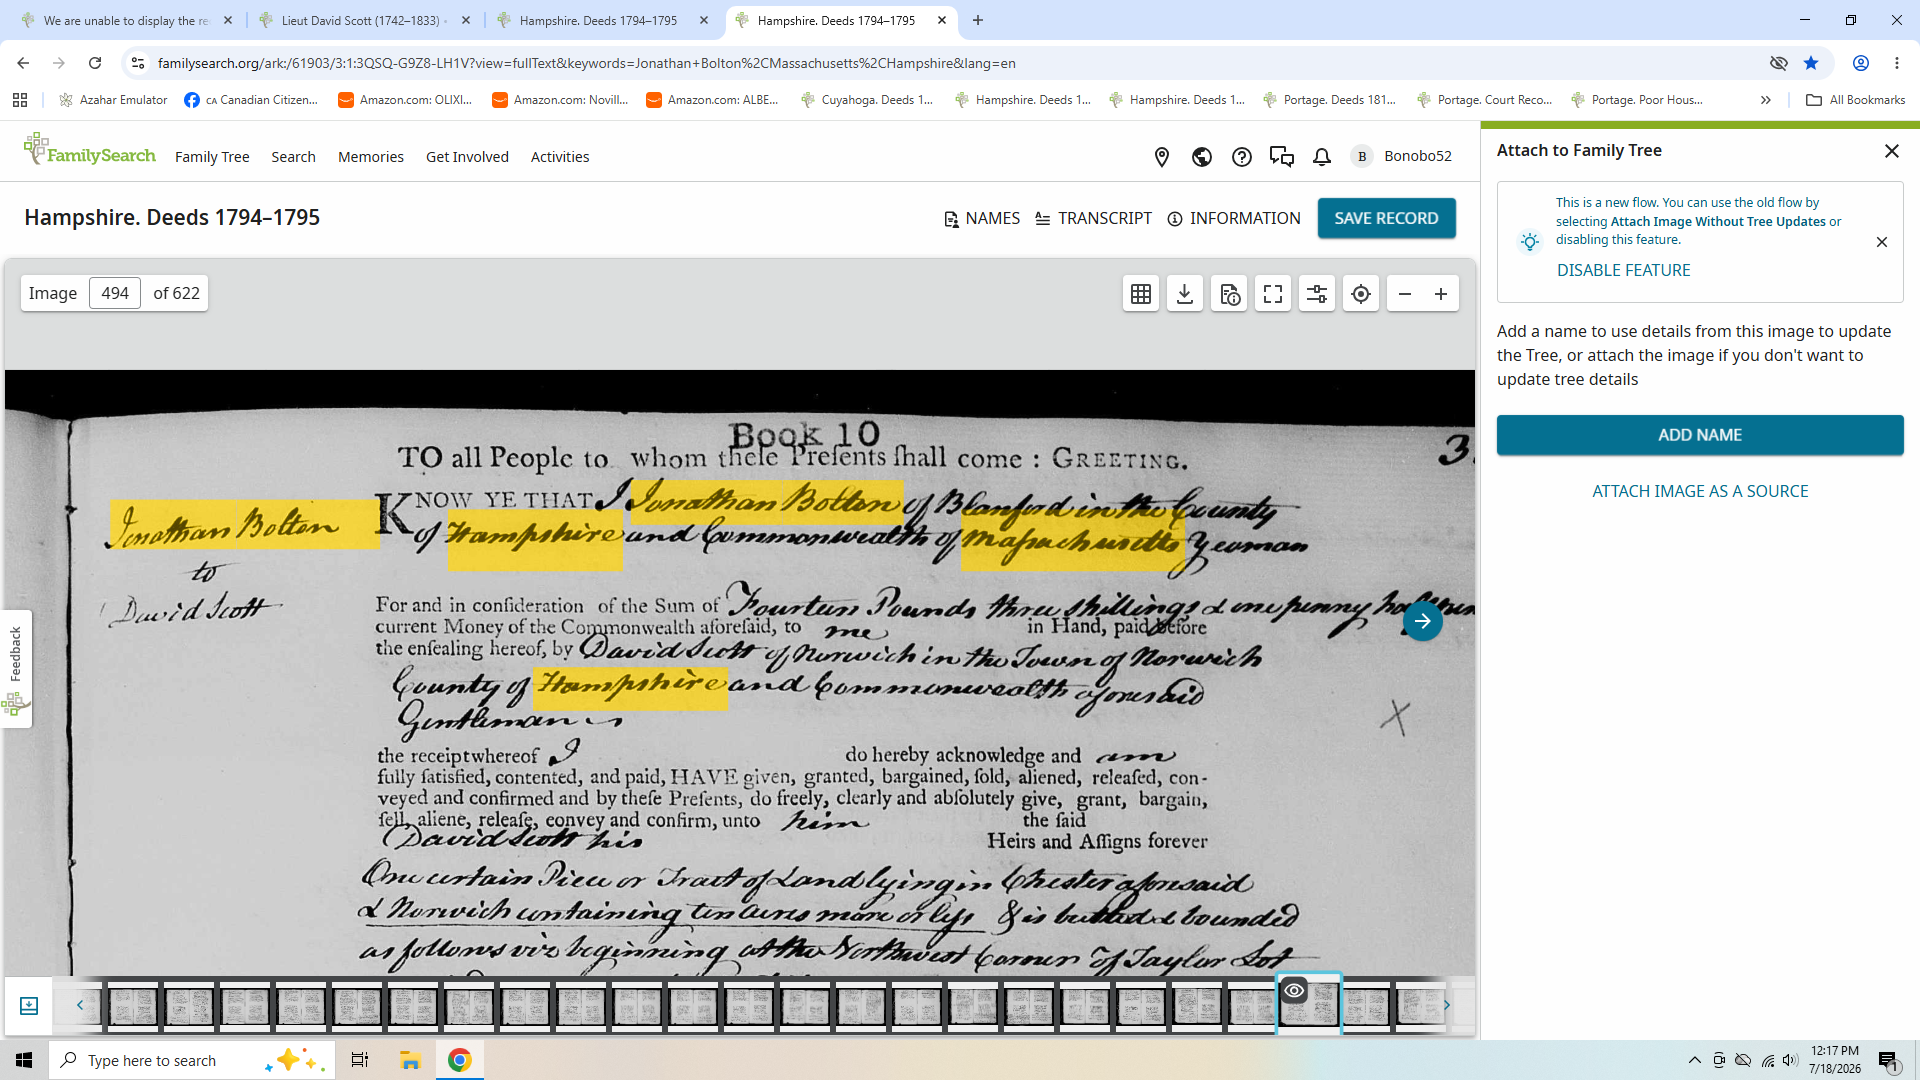 We are unable to display the re
Lieut David Scott (1742–1833)
Hampshire. Deeds 1794–1795
Hampshire. Deeds 1794–1795
familysearch.org/ark:/61903/3:1:3QSQ-G9Z8-LH1V?view=fullText&keywords=Jonathan+Bolton%2CMassachusetts%2CHampshire&lang=en
Azahar Emulator
CA Canadian Citizen...
Amazon.com: OLIXI...
Amazon.com: Novill...
Amazon.com: ALBE...
Cuyahoga. Deeds 1...
Hampshire. Deeds 1...
Hampshire. Deeds 1...
Portage. Deeds 181...
Portage. Court Reco...
Portage. Poor Hous...
All Bookmarks
FamilySearch
Family Tree
Search
Memories
Get Involved
Activities
B
Bonobo52
Hampshire. Deeds 1794–1795
NAMES
TRANSCRIPT
INFORMATION
SAVE RECORD
Image 494 of 622
Book 10
TO all People to whom theſe Preſents ſhall come : GREETING.
3
KNOW YE THAT I Jonathan Bolton of Blanford in the County
of Hampshire and Commonwealth of Maſsachusetts Yeoman
Jonathan Bolton
to
David Scott
For and in conſideration of the Sum of Fourteen Pounds three shillings & one penny
current Money of the Commonwealth aforeſaid, to me in Hand, paid before
the enſealing hereof, by David Scott of Norwich in the Town of Norwich
County of Hampshire and Commonwealth aforesaid
Gentleman
X
the receipt whereof I do hereby acknowledge and am
fully ſatisfied, contented, and paid, HAVE given, granted, bargained, ſold, aliened, releaſed, con-
veyed and confirmed and by theſe Preſents, do freely, clearly and abſolutely give, grant, bargain,
ſell, aliene, releaſe, convey and confirm, unto him the ſaid
David Scott his Heirs and Aſſigns forever
One certain Piece or Tract of Land lying in Chester aforesaid
& Norwich containing ten acres more or leſs & is butted & bounded
as follows viz beginning at the Northwest Corner of Taylor Lot
Feedback
Attach to Family Tree
This is a new flow. You can use the old flow by
selecting Attach Image Without Tree Updates or
disabling this feature.
DISABLE FEATURE
Add a name to use details from this image to update
the Tree, or attach the image if you don't want to
update tree details
ADD NAME
ATTACH IMAGE AS A SOURCE
Type here to search
12:17 PM
7/18/2026
1